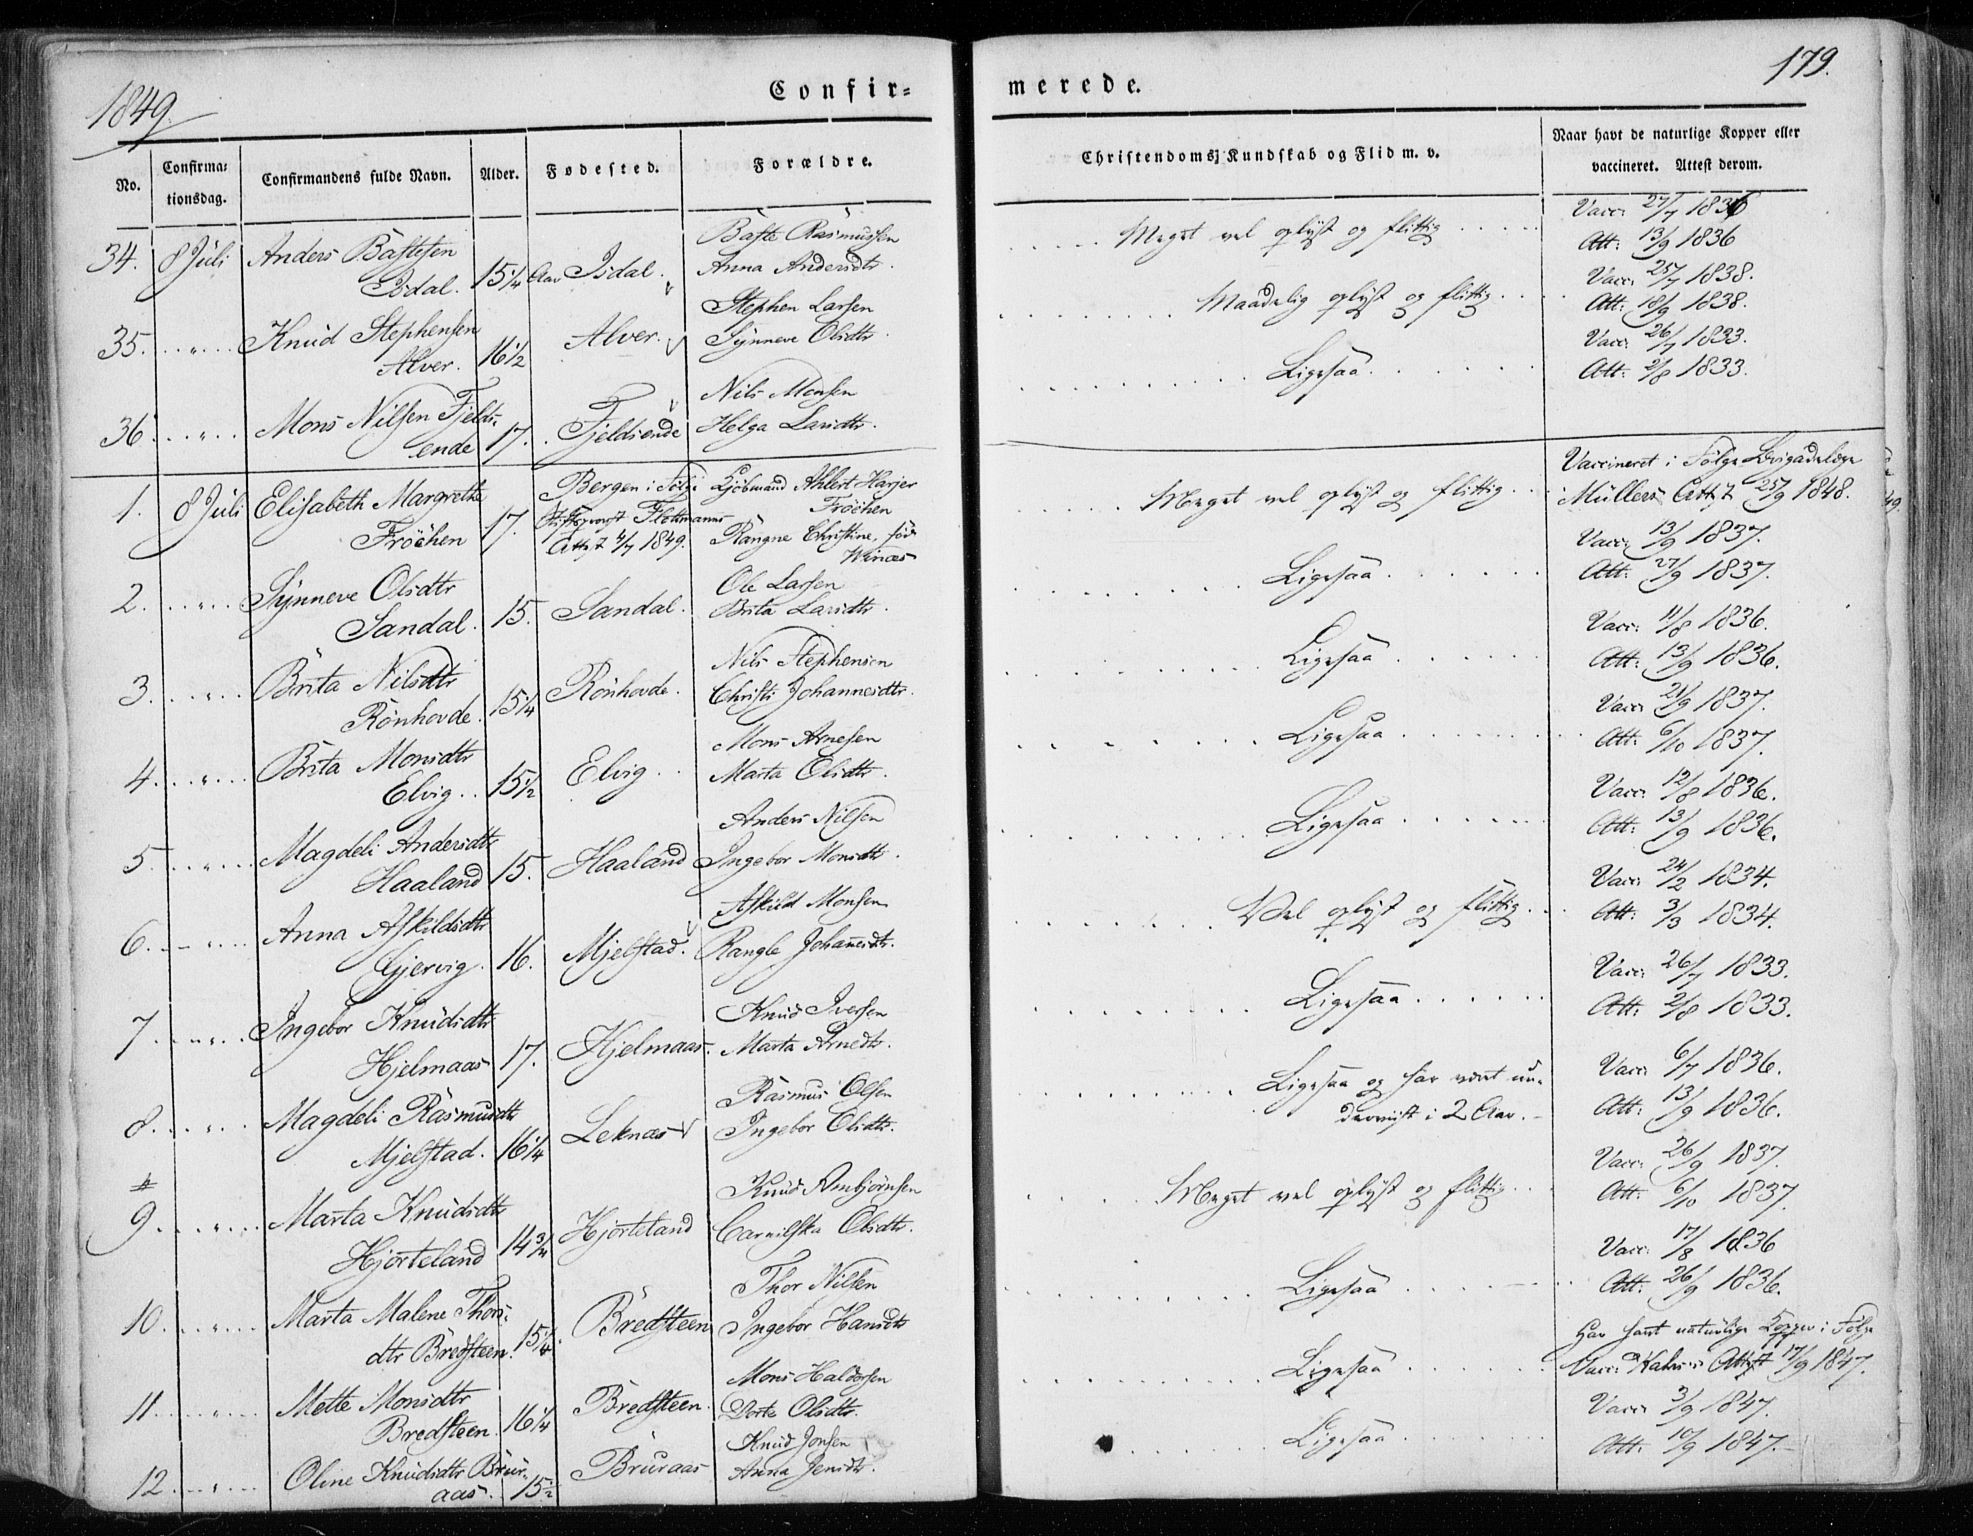 1849.
Confir=
merede.
179.
No.
Confirma=
tionsdag.
Confirmandens fulde Navn.
Alder.
Fødested.
Forældre.
Christendoms Kundskab og Flid m. v.
Naar havt de naturlige Kopper eller
vaccineret. Attest derom.
34. 8 Juli Anders Bastesen
Isdal. 15 1/4 Aar Isdal.
Baste Rasmussen
Anna Andersdtr.
Meget vel oplyst og flittig
Vacc: 27/7 1836
Att: 13/9 1836
35. " Knud Stephensen
Alver. 16 1/2 Alver.
Stephen Larsen
Synneve Olsdtr.
Maadelig oplyst og flittig
Vacc: 25/7 1838.
Att: 18/9 1838.
36. " Mons Nilsen Fjelds-
ende 17. Fjeldsende
Nils Monsen
Helga Larsdtr.
Ligesaa
Vacc: 26/7 1833.
Att: 2/8 1833.
1. 8 Juli Elisabeth Margrethe
Fröchen 17.
Bergen i Følge
Stiftsprovst Flottmanns
Attst 4/7 1849.
Kjöbmand Ahlert Harjer
Fröchen
Rangne Christine, föd
Meget vel oplyst og flittig
Vaccineret i Følge Brigadelæge
Müllers Attst 25/9 1848.
2. " Synneve Olsdtr
Sandal. 15. Sandal.
Ole Larsen
Brita Larsdtr.
Ligesaa
Vacc: 13/9 1837.
Att: 27/9 1837.
3. " Brita Nilsdtr
Rönhovde. 15 1/4 Rönhovde.
Nils Stephensen
Christi Johannesdtr.
Ligesaa
Vacc: 11/8 1836.
Att: 13/9 1836.
4. " Brita Monsdtr
Elvig. 15 1/2 Elvig.
Mons Arnesen
Marta Olsdtr.
Ligesaa
Vacc: 21/9 1837.
Att: 6/10 1837.
5. " Magdeli Andersdtr
Haaland 15. Haaland
Anders Nilsen
Ingebor Monsdtr.
Ligesaa
Vacc: 12/8 1836.
Att: 13/9 1836.
6. " Anna Askildsdtr
Gjervig. 16. Mjelstad.
Askild Monsen
Rangle Johanesdtr.
Vel oplyst og flittig
Vacc: 24/2 1834.
Att: 3/3 1834.
7. " Ingebor Knudsdtr
Hjelmaas 17. Hjelmaas.
Knud Iversen
Marta Arnesdtr.
Ligesaa
Vacc: 26/7 1833.
Att: 2/8 1833.
8. " Magdeli Rasmusdtr
Mjelstad. 16 1/4 Leknæs
Rasmus Olsen
Ingebor Olsdtr.
Ligesaa og har været un-
derviist i 2 Aar.
Vacc: 6/7 1836.
Att: 13/9 1836.
#
9. " Marta Knudsdtr
Hjorteland 14 3/4 Hjorteland
Knud Ambjörnsen
Carnilska Olsdtr.
Meget vel oplyst og flittig
Vacc: 26/9 1837.
Att: 6/10 1837.
10. " Marta Malene Thors-
dtr Bredsteen. 15 1/4. Bredsteen
Thor Nilsen
Ingebor Hansdtr
Ligesaa
Vacc: 17/8 1836
Att: 26/9 1836.
11. " Mette Monsdtr
Bredsteen. 16 1/4 Bredsteen.
Mons Haldorsen
Dorte Olsdtr.
Ligesaa
Har havt naturlige Kopper i Følge
Vacc: Attst 17/9 1847.
12. " Oline Knudsdtr Brur-
aas. 15 1/2 Bruraas
Knud Jonsen
Anna Jensdtr.
Ligesaa
Vacc: 3/9 1847.
Att: 10/9 1847.